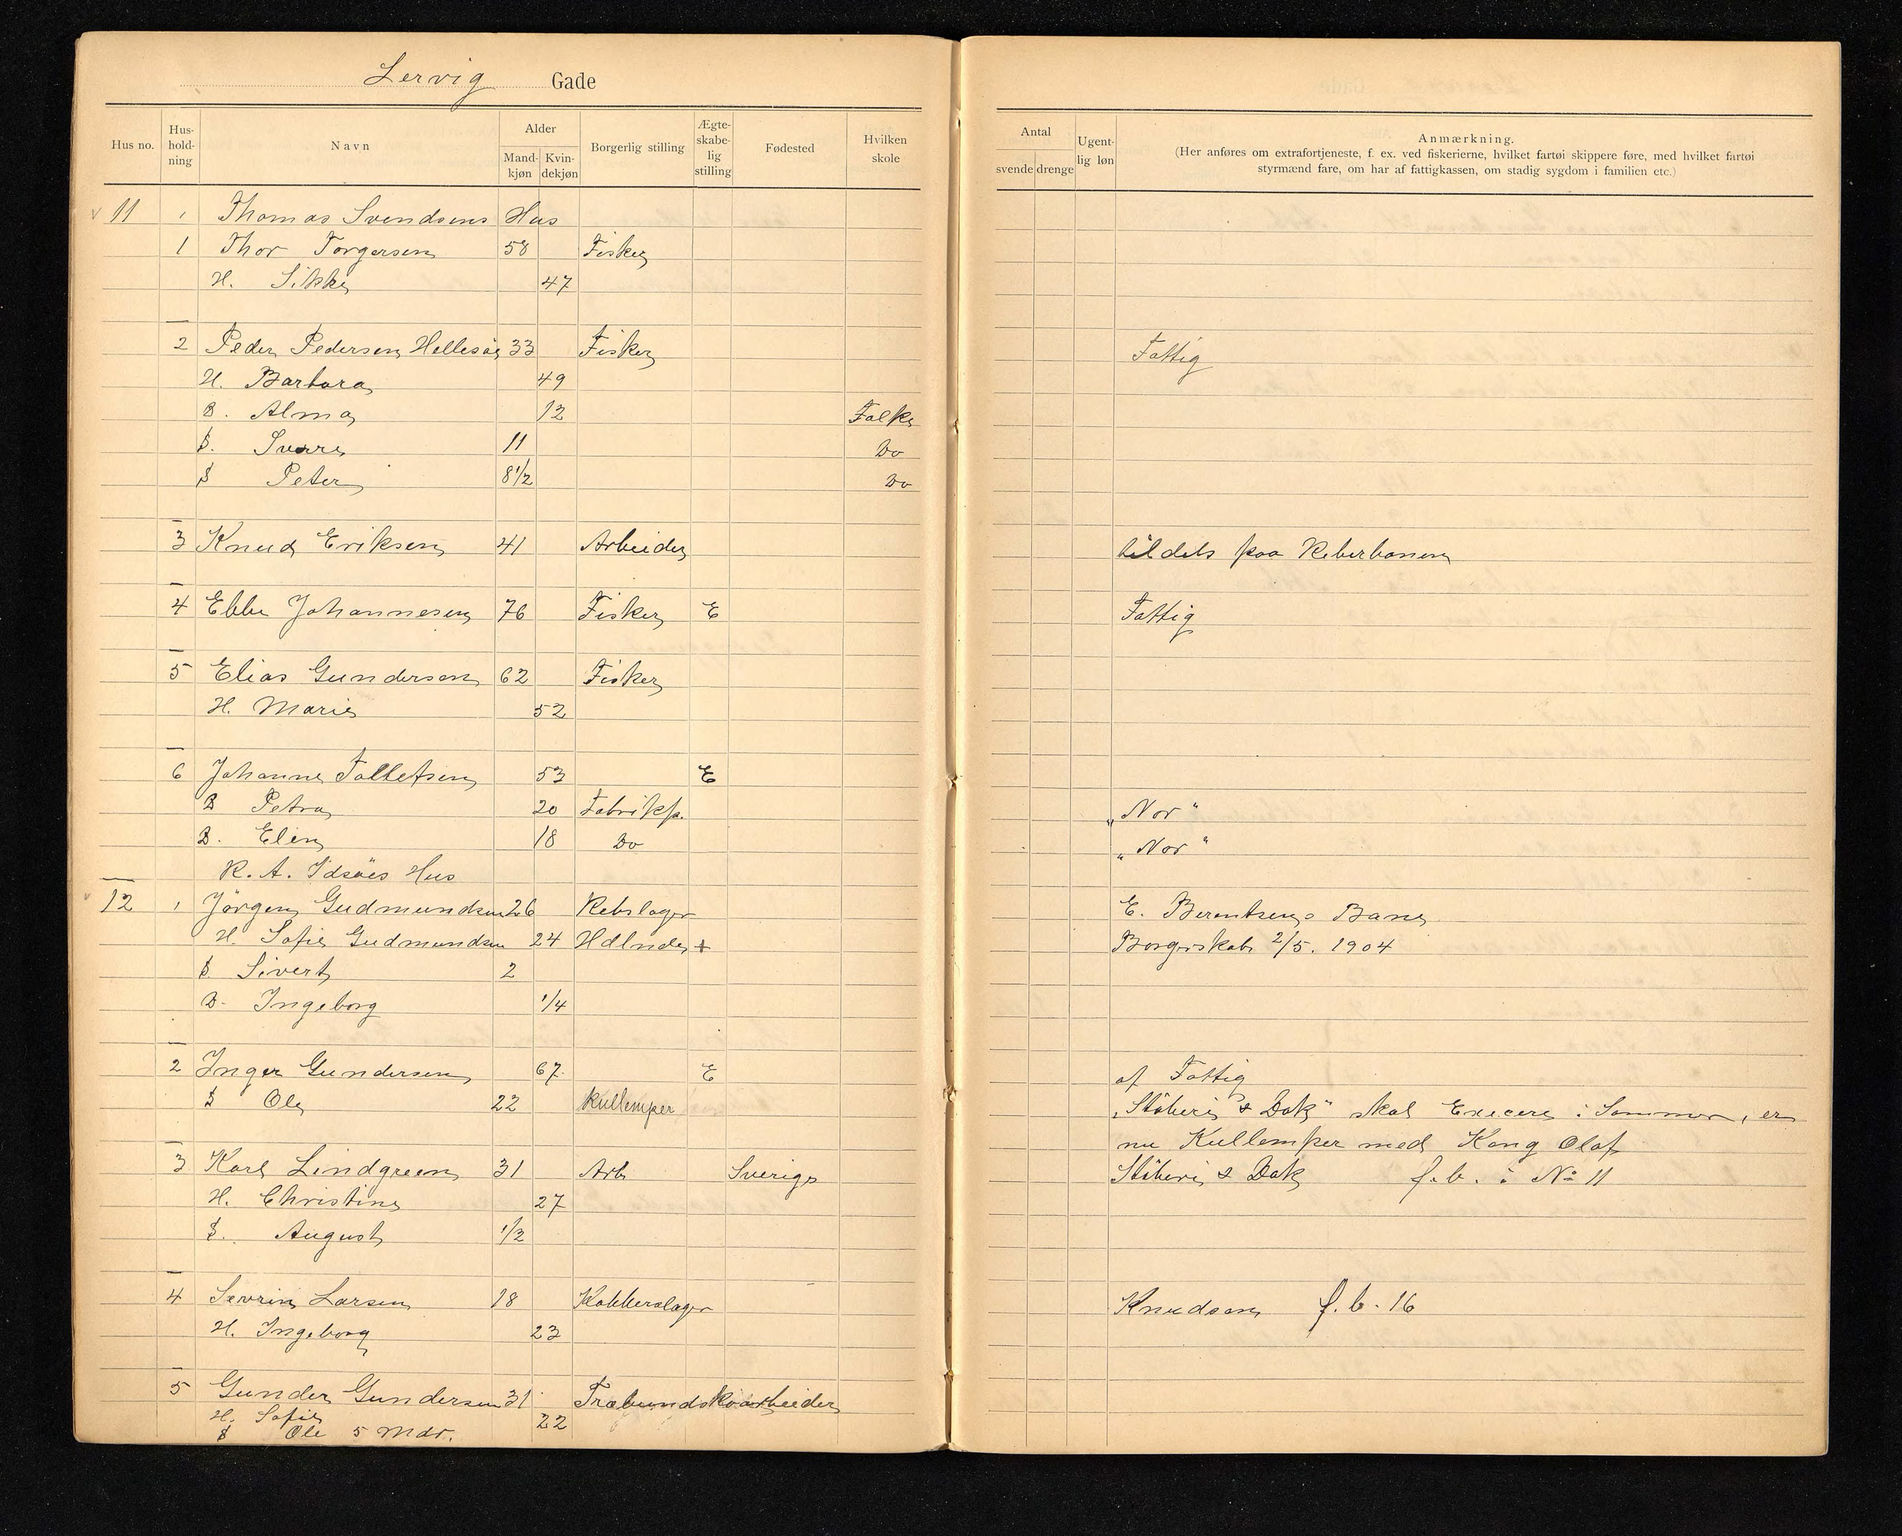 Lervig Gade
Hus no. Hus-hold-ning Navn Alder Mand-kjøn Kvin-dekjøn Borgerlig stilling Ægte-skabe-lig stilling Fødested Hvilken skole
Antal svende drenge Ugent-lig løn Anmærkning.
(Her anføres om extrafortjeneste, f. ex. ved fiskerierne, hvilket fartøi skippere føre, med hvilket fartøi
styrmænd fare, om har af fattigkassen, om stadig sygdom i familien etc.)
11 1 Thomas Svendsens Hus
1 Thor Torgersen 58 Fisker
H. Sikke 47
2 Peder Pedersen Hellesøe 33 Fisker Fattig
H. Barbara 49
D. Alma 12 Folke
S. Sverre 11 Do
S Peter 8 1/2 Do
3 Knud Eriksen 41 Arbeider tildels paa Reberbanen
4 Ebbe Johannesen 76 Fisker E Fattig
5 Elias Gundersen 62 Fisker
H. Marie 52
6 Johanne Tollefsen 53 E
D Petra 20 Fabrikp. „Nor"
D. Elen 18 Do „Nor"
R. A. Idsöes Hus
12 1 Jörgen Gudmundsen 26 Rebslager E. Berentsens Bane
H. Sofie Gudmundsen 24 Hdlnde + Borgerskab 2/5. 1904
S Sivert 2
D. Ingeborg 1/4
2 Inger Gundersen 67 E af Fattig
S Ole 22 Kullemper „Stöberi & Dok" skal Execere i Sommer, er
nu Kullemper med Kong Olaf
3 Karl Lindgreen 31 Arb Sverige Stöberi & Dok f. b. i No 11
H. Christine 27
S. August 1/2
4 Sevrin Larsen 18 Kobberslager Knudsen f. b. 16
H. Ingeborg 23
5 Gunder Gundersen 31 Træbundskoarbeider
H. Sofie 22
S Ole 5 Mdr.